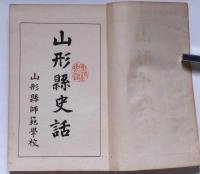 山形縣史話
山形縣師範學校